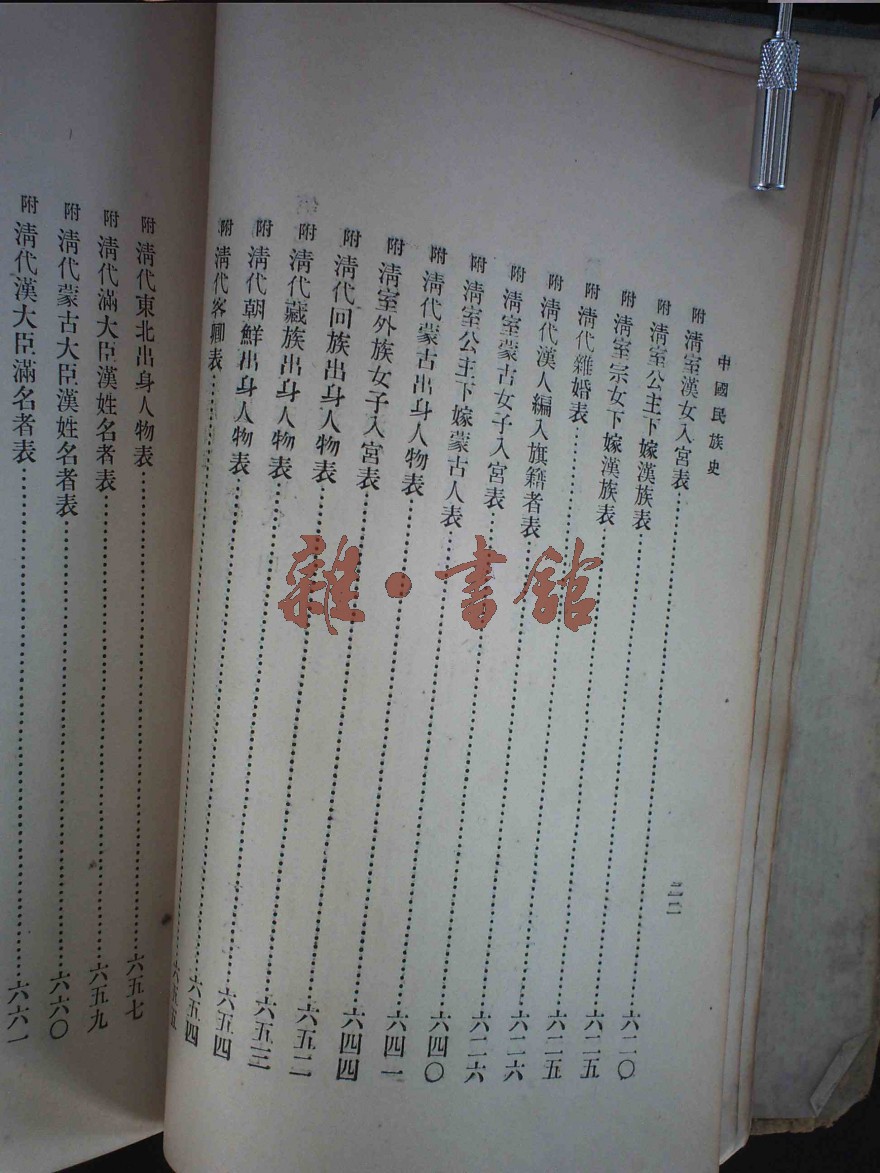 中國民族史 二二
附 清室漢女入宮表……六二〇
附 清室公主下嫁漢族表……六二五
附 清室宗女下嫁漢族表……六二五
附 清代雜婚表……六二六
附 清代漢人編入旗籍者表……六二六
附 清室蒙古女子入宮表……六四〇
附 清室公主下嫁蒙古人表……六四一
附 清代蒙古出身人物表……六四四
附 清室外族女子入宮表……六五二
附 清代回族出身人物表……六五三
附 清代藏族出身人物表……六五四
附 清代朝鮮出身人物表……六五四
附 清代客卿表……六五五
附 清代東北出身人物表……六五七
附 清代滿大臣漢姓名者表……六五九
附 清代蒙古大臣漢姓名者表……六六〇
附 清代漢大臣滿名者表……六六一
雜·書館